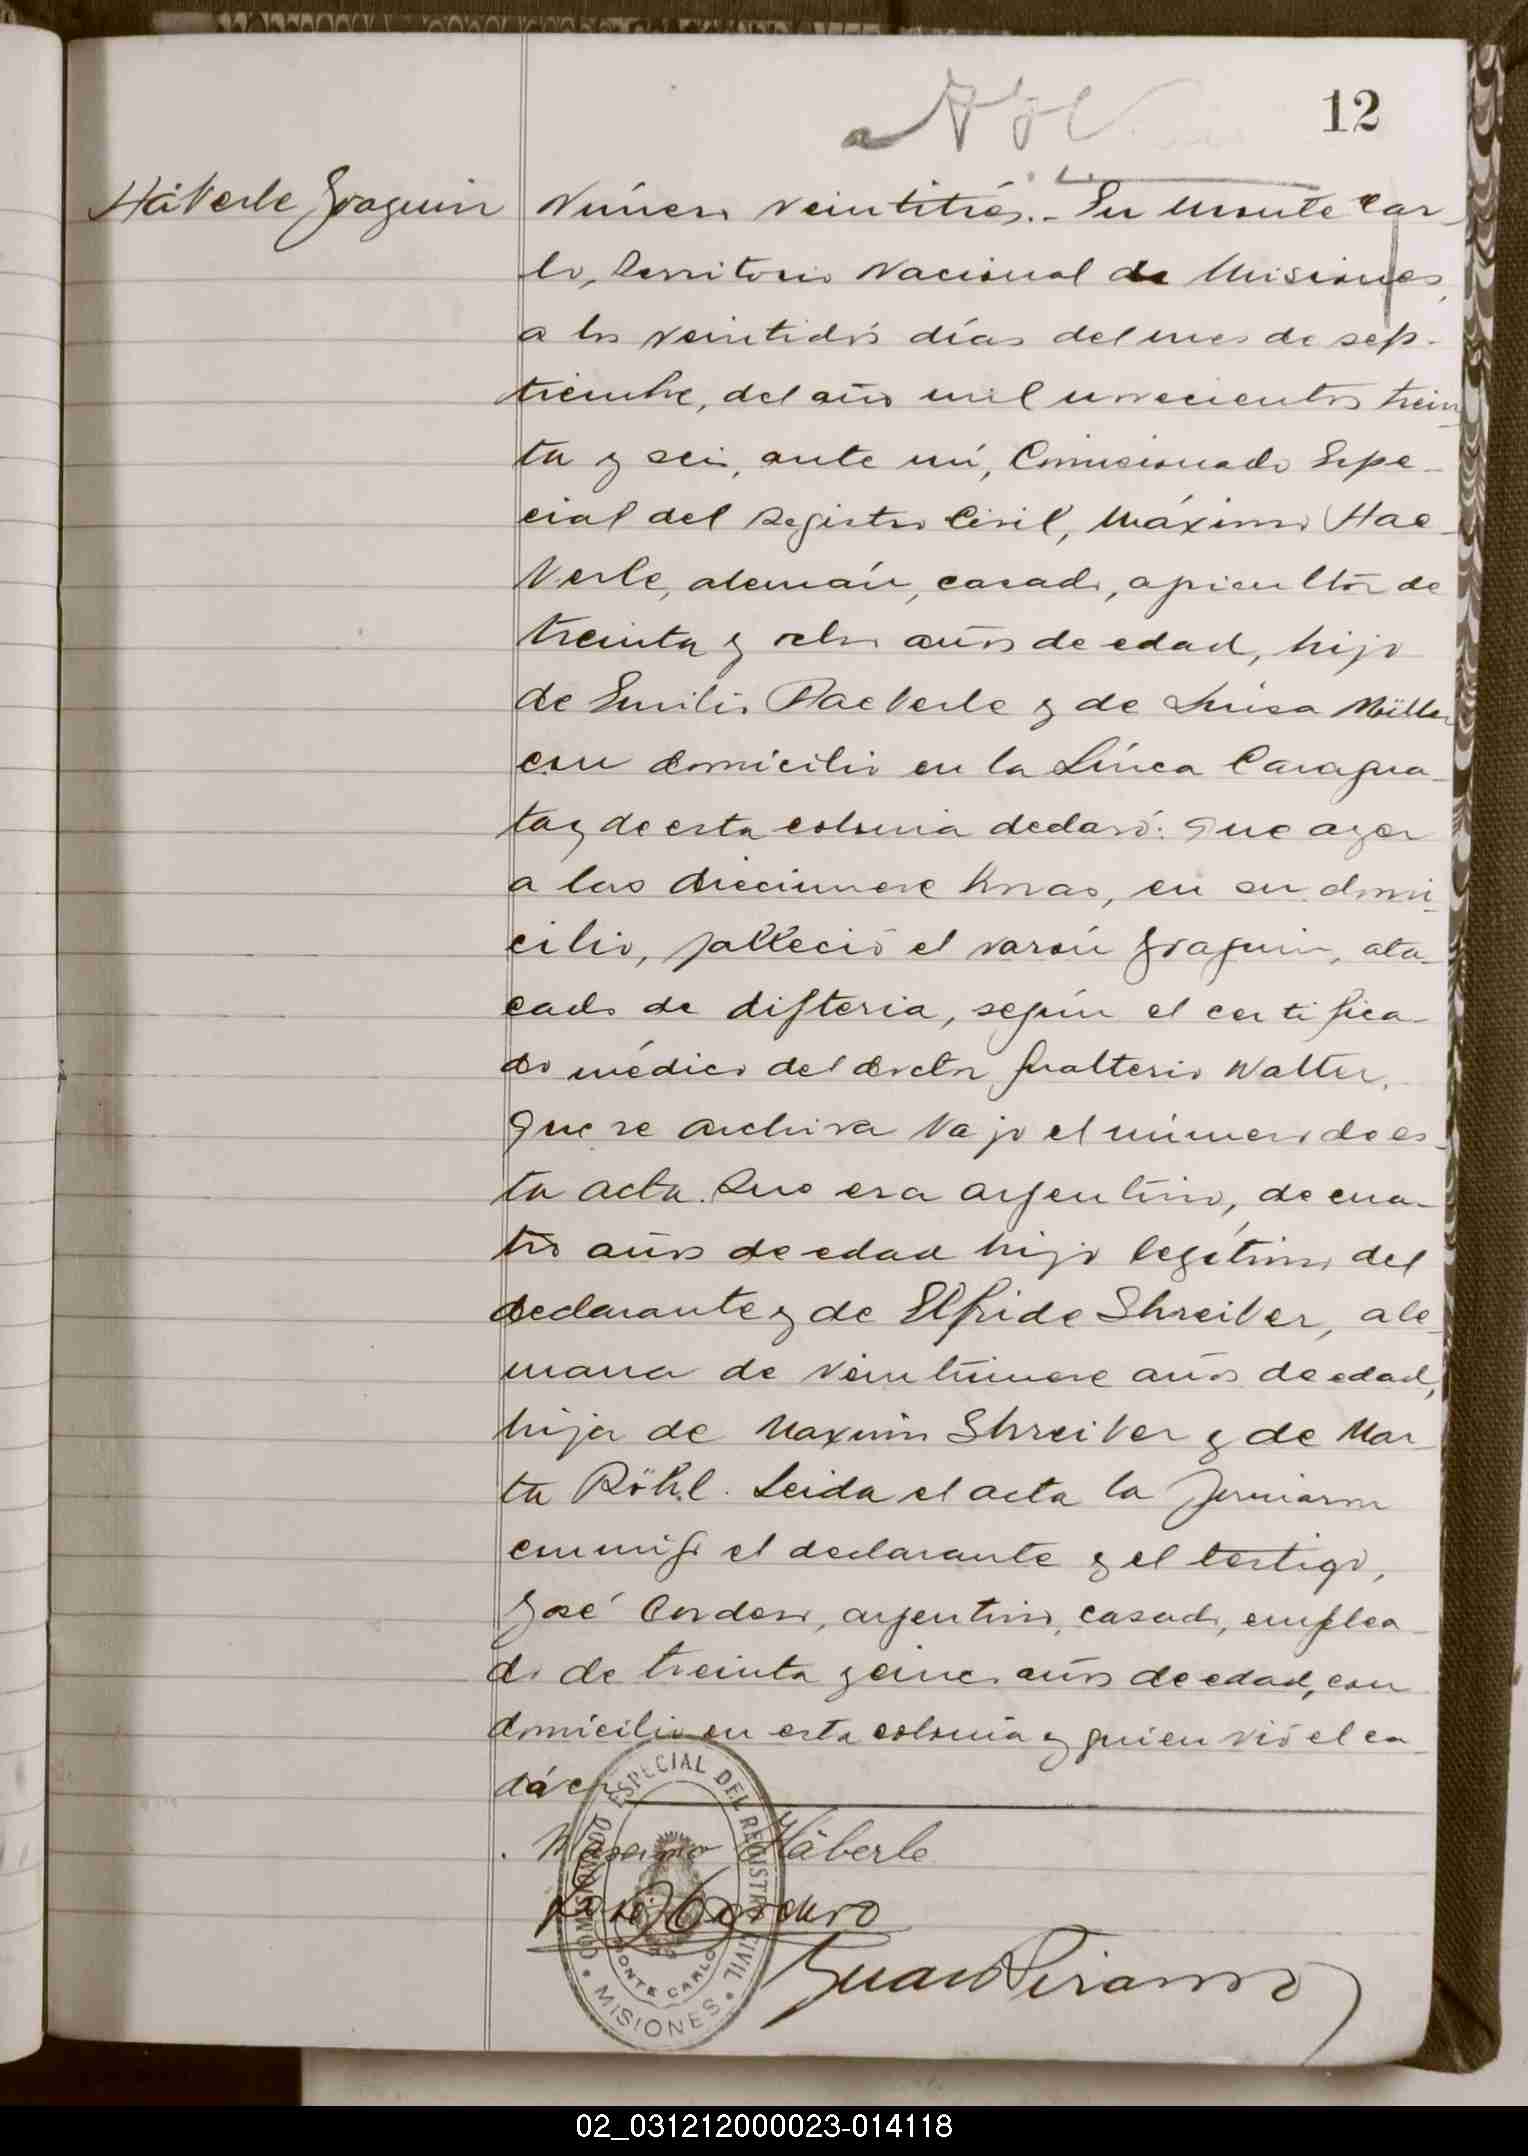 12
Häberle Joaquin
Número veintitrés.- En Monte Car-
lo, Territorio Nacional de Misiones,
a los veintidós días del mes de sep-
tiembre, del año mil novecientos trein-
ta y seis, ante mí, Comisionado Espe-
cial del Registro Civil, Máximo Hae-
berle, alemán, casado, apicultor de
treinta y ocho años de edad, hijo
de Emilio Haeberle y de Luisa Müller
con domicilio en la Línea Caragua-
tay de esta colonia declaró: Que ayer
a las diecinueve horas, en su domi-
cilio, falleció el varón Joaquin, ata-
cado de difteria, según el certifica-
do médico del doctor Gualterio Walter,
que se archiva bajo el número de es-
ta acta. Que era argentino, de cua-
tro años de edad hijo legítimo del
declarante y de Elfride Shreiber, ale-
mana de veintinueve años de edad,
hija de Maximo Shreiber y de Mar-
ta Röhl. Leida el acta la firmaron
conmigo el declarante y el testigo,
José Cordero, argentino, casado, emplea-
do de treinta y cinco años de edad, con
domicilio en esta colonia y quien vió el ca-
dáver
Maximo Häberle
José Cordero
COMISIONADO ESPECIAL DEL REGISTRO CIVIL
MONTE CARLO
• MISIONES •
Juan
02_031212000023-014118